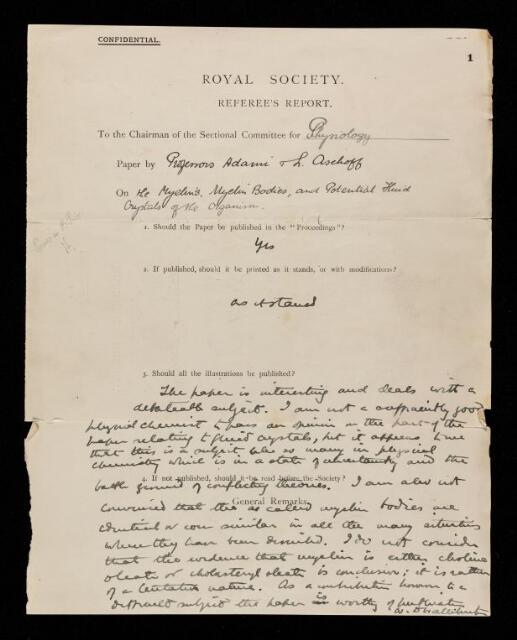 CONFIDENTIAL.
1
ROYAL SOCIETY.
REFEREE'S REPORT.
To the Chairman of the Sectional Committee for Physiology
Paper by Professors Adami & L. Aschoff
On the Myelins, Myelin Bodies, and Potential Fluid
Crystals of the Organism.
1. Should the Paper be published in the "Proceedings"?
Yes
2. If published, should it be printed as it stands, or with modifications?
as it stands
3. Should all the illustrations be published?
The paper is interesting and deals with a
debateable subject. I am not a sufficiently good
physical chemist to pass an opinion on the part of the
paper relating to fluid crystals, but it appears to me
that this is a subject like so many in physical
chemistry which is in a state of uncertainty and the
4. If not published, should it be read before the Society?
battle ground of conflicting theories. I am also not
General Remarks.
convinced that the so called myelin bodies are
identical or even similar in all the many situations
where they have been described. I do not consider
that the evidence that myelin is either choline
oleate or cholesteryl oleate is conclusive; it is rather
of a tentative nature. As a contribution however to a
difficult subject the paper is worthy of publication
W. D. Halliburton